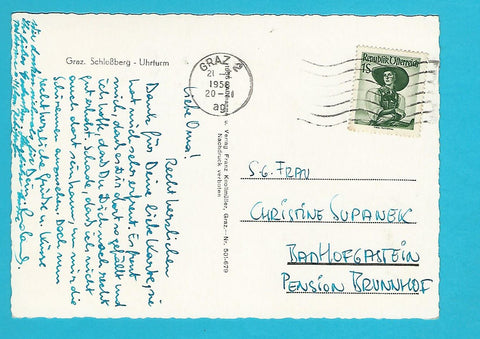 Graz. Schloßberg - Uhrturm
Liebe Oma!
Recht herzlichen
Dank für Deine liebe Karte, sie
hat mich sehr erfreut. Es freut
mich, daß es Dir dort so gefällt und
ich hoffe, daß Du Dich auch recht
gut erholst. Schade, daß ich nicht
auch dort sein kann, um mir die
anzusehen. Doch nun
recht herzliche Grüße u. Küsse
GRAZ 2
21
1958
20-21
Verlag Franz Knollmüller, Graz. - Nr. 501-679
Nachdruck verboten
Republik Österreich
1S
S.g. FRAU
CHRISTINE SUPANEK
BADHOFGASTEIN
PENSION BRUNNHOF